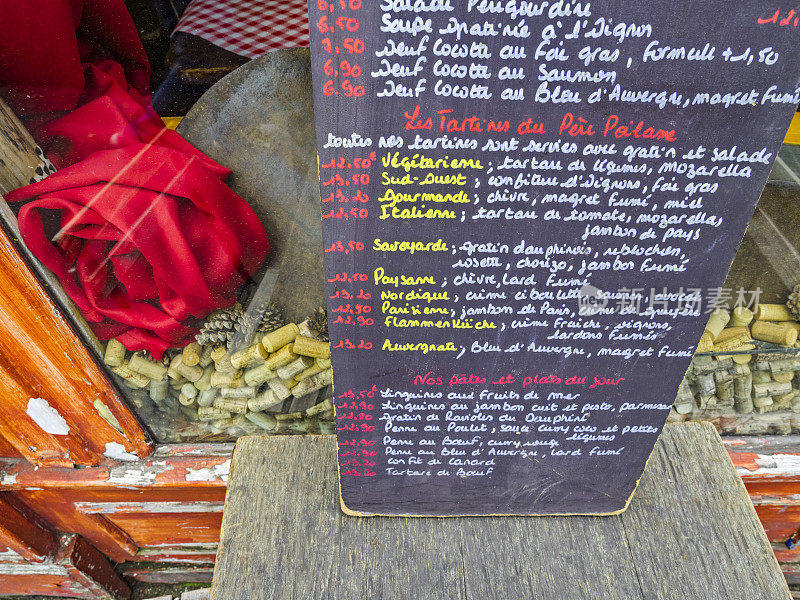 6,50 Salade Périgourdine
6,50 Soupe Gratinée à l'Oignon
7,50 Oeuf Cocotte au Foie gras, Formule +1,50
6,90 Oeuf Cocotte au Saumon
6,90 Oeuf Cocotte au Bleu d'Auvergne, magret fumé
Les Tartines du Père Pailasme
toutes nos tartines sont servies avec gratin et salade
12,50€ Végétarienne ; tartare de légumes, mozarella
13,50 Sud-Ouest ; confiture d'oignons, foie gras
13,20 Gourmande ; chèvre, magret fumé, miel
12,50 Italienne ; tartare de tomate, mozarella,
jambon de pays
13,50 Savoyarde ; gratin dauphinois, reblochon,
rosette, chorizo, jambon fumé
12,50 Paysanne ; chèvre, lard fumé
13,20 Nordique ; crème ciboulette, saumon
12,90 Parisienne ; jambon de Paris,
13,20 Flammenküche ; crème fraîche, oignons,
lardons fumés
13,20 Auvergnate ; Bleu d'Auvergne, magret fumé
Nos pâtes et plats du jour
Linguines aux Fruits de mer
Linguines au jambon cuit et pesto, parmesan
Gratin de Ravioles du Dauphiné
Penne au Poulet, sauce curry et petits
légumes
Penne au Bœuf, curry rouge
Penne au Bleu d'Auvergne, lard fumé
13,20 Confit de Canard
13,20 Tartare de Bœuf